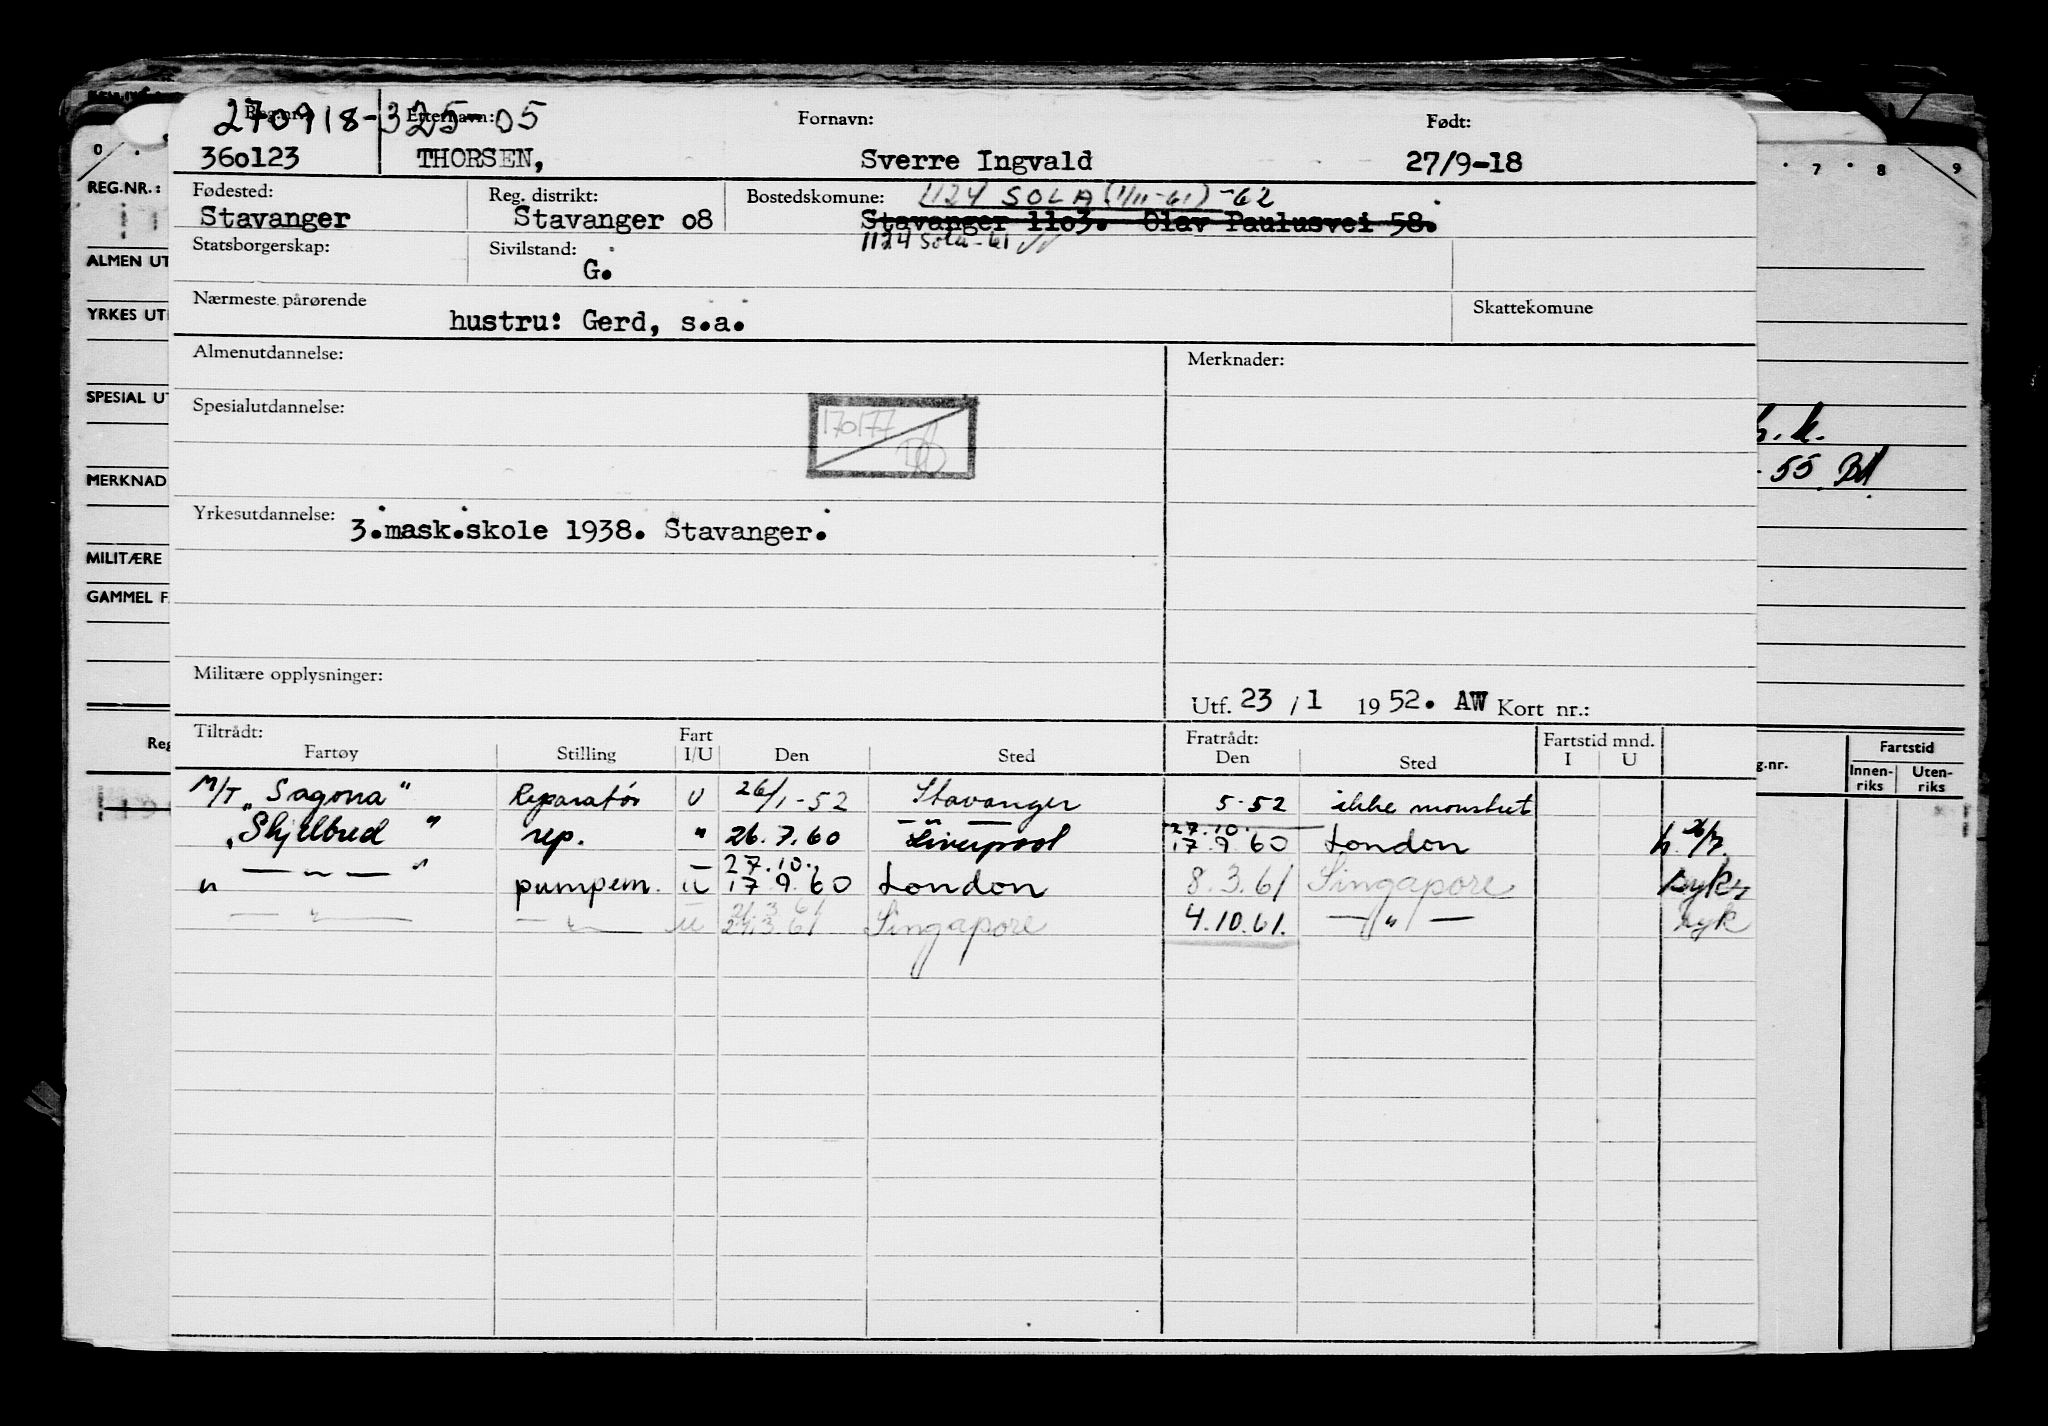 270918-325-05
Reg.nr. Etternavn: Fornavn: Født:
360123 THORSEN, Sverre Ingvald 27/9-18
Fødested: Reg. distrikt: Bostedskomune: 1124 SOLA (1/11-61)-62
Stavanger Stavanger o8 Stavanger 11o3. Olav Paulusvei 58.
Statsborgerskap: Sivilstand: 1124 Sola-61
G.
Nærmeste pårørende Skattekomune
hustru: Gerd, s.a.
Almenutdannelse: Merknader:
Spesialutdannelse:
170177
Yrkesutdannelse: 3.mask.skole 1938. Stavanger.
Militære opplysninger:
Utf. 23 / 1 1952. AW Kort nr.:
Tiltrådt: Fart Fratrådt: Fartstid mnd.
Fartøy Stilling I/U Den Sted Den Sted I U
M/T „Sagona" Reparatör U 26/1-52 Stavanger 5-52 ikke mönstret
27.10.
„Skjelbred" rep. " 26.7.60 Liverpool 17.9.60 London h. 26/7.
27.10.
" — " — " pumpem. U 17.9.60 London 8.3.61 Singapore
21.3.61
— " — — " — U 24.3.61 Singapore 4.10.61. — " — ryk
REG.NR.:
ALMEN UT
YRKES UT
SPESIAL UT
MERKNAD
MILITÆRE
GAMMEL F
Reg
0
7 8 9
h.k.
- 55 Bd
g.nr. Fartstid
Innen-riks Uten-riks